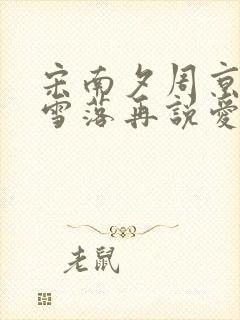 宋南夕周京
雪落再說愛
老鼠